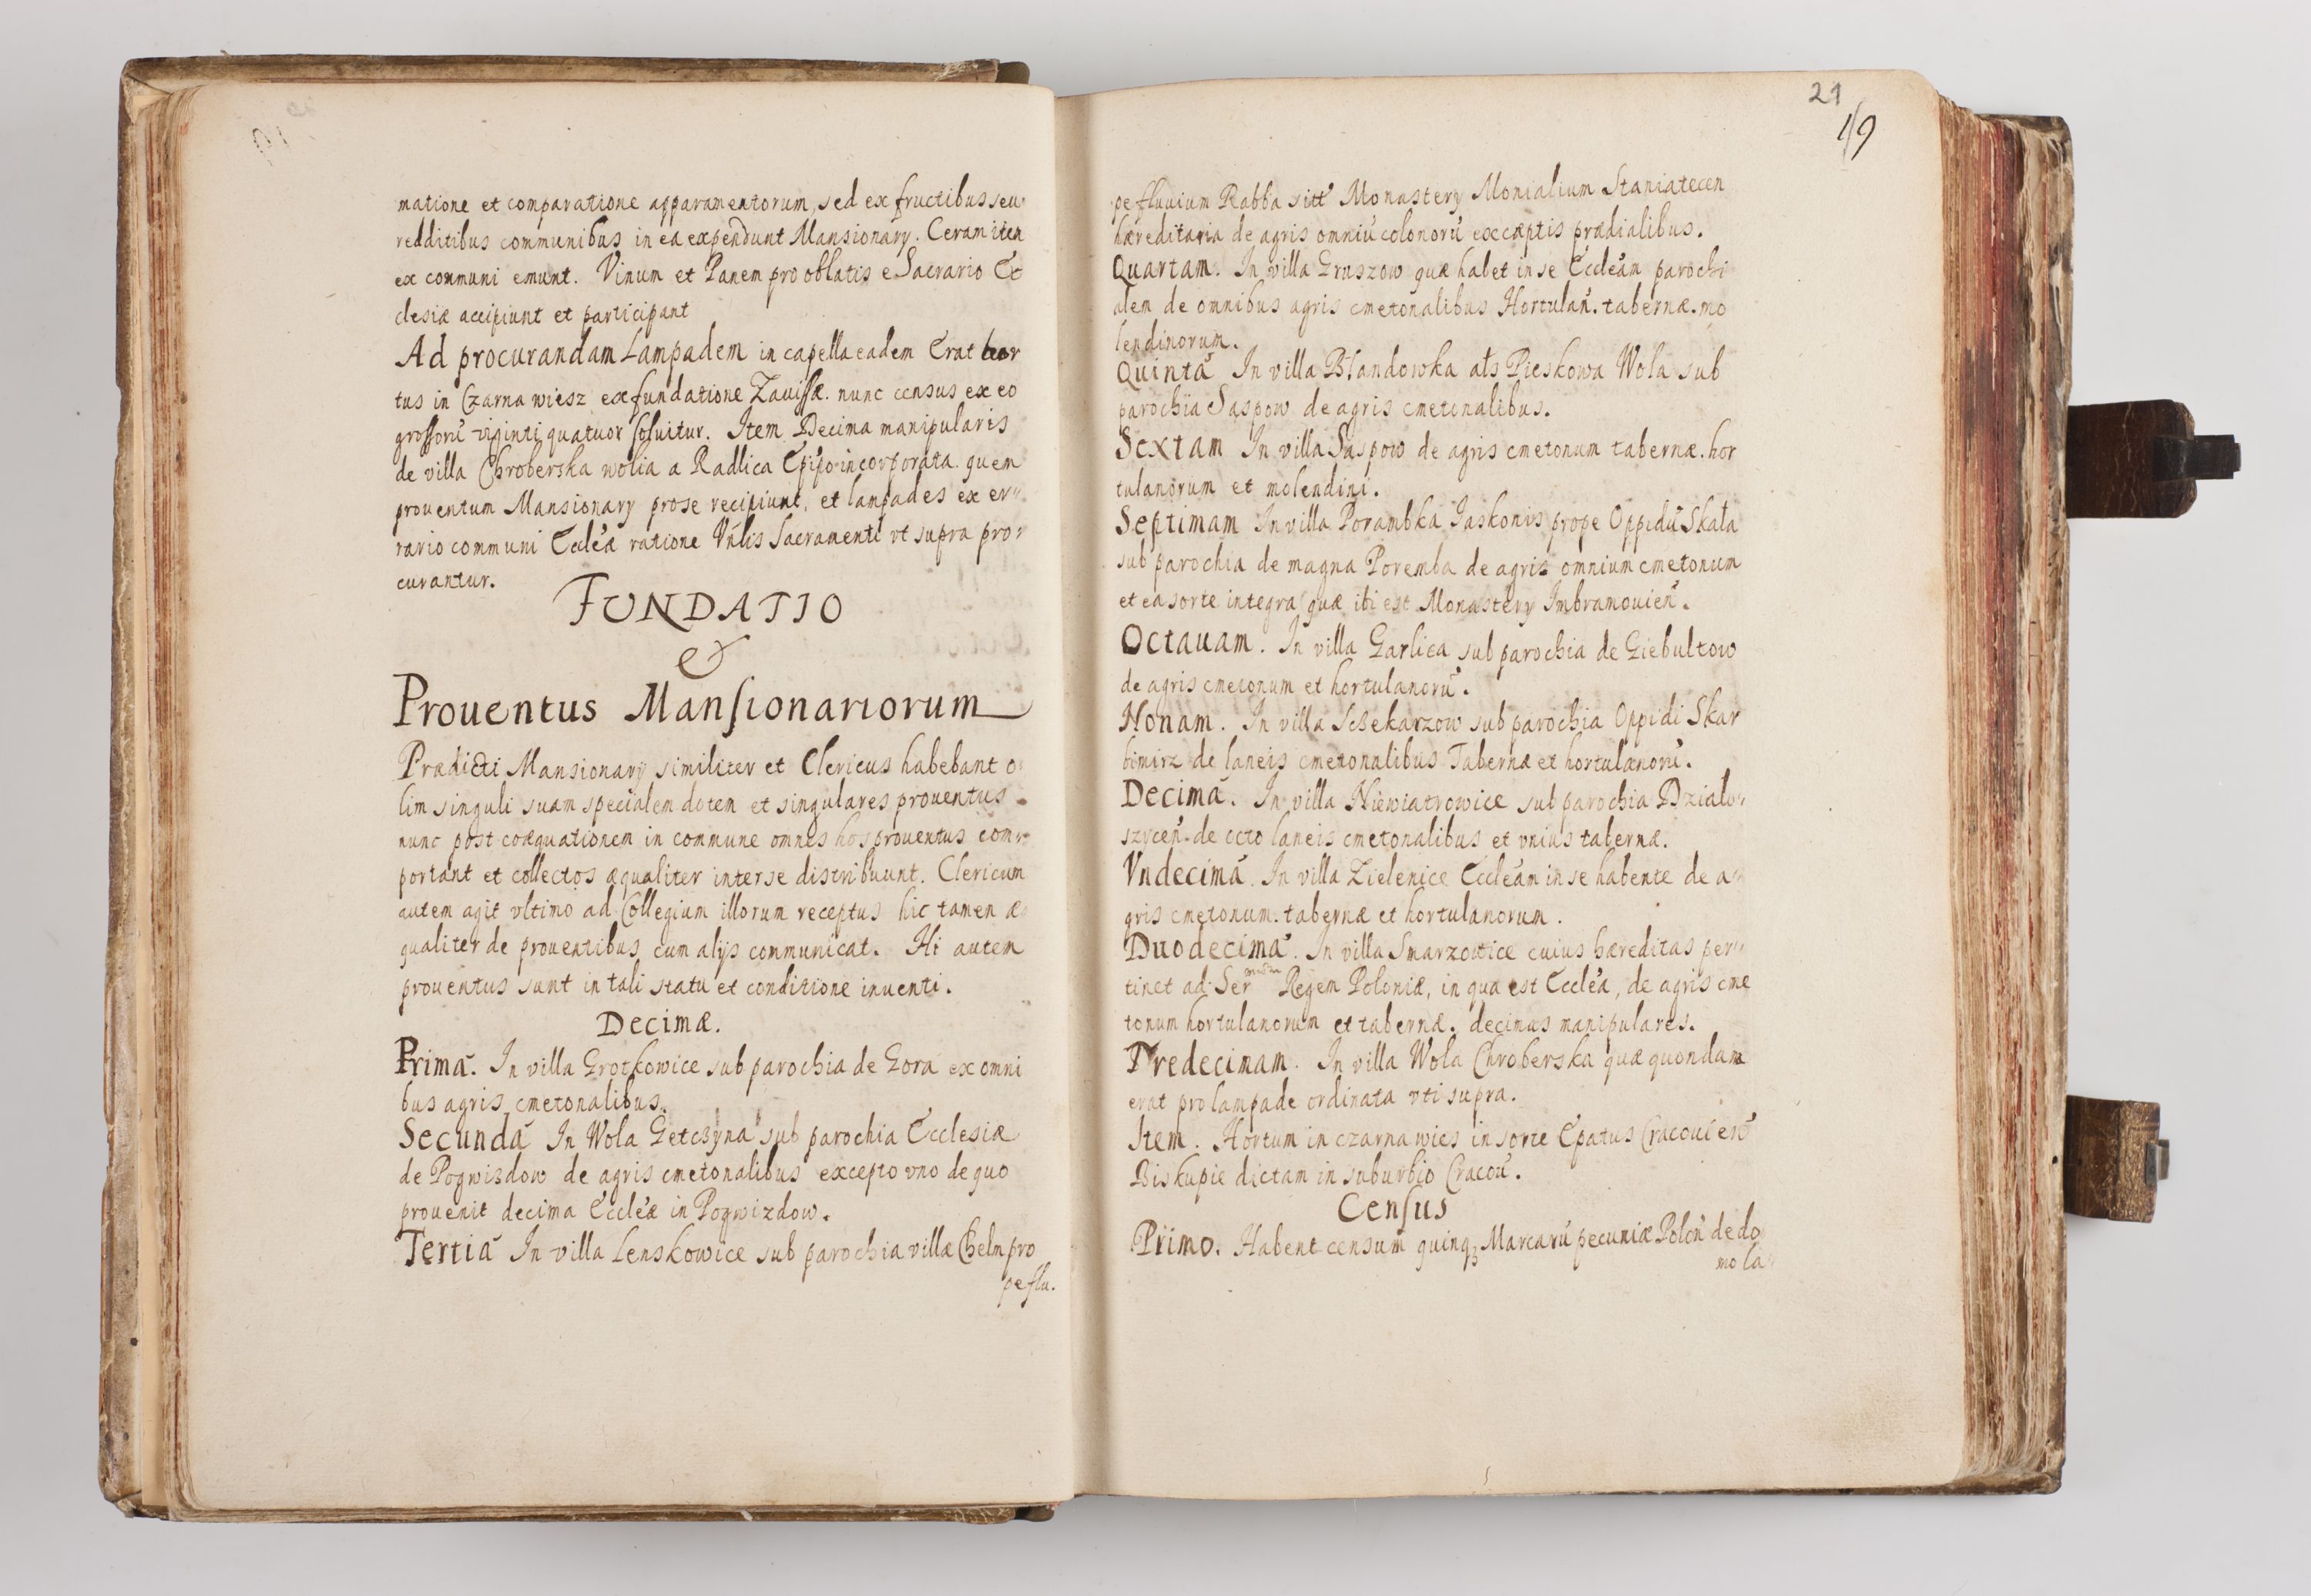 matione et comparatione apparamentorum, sed ex fructibus seu
redditibus communibus in ea expendunt Mansionarÿ. Ceram item
ex communi emunt. Vinum et Panem pro oblatis e Sacrario Ec
clesiæ accipiunt et participant
Ad procurandam Lampadem in capella eadem Erat hor
tus in Czarna wiesz ex fundatione Zauissæ. nunc census ex eo
grossorũ viginti quatuor soluitur. Item Decima manipularis
de villa Chroberska wolia a Radlica Epĩpo incorporata. quem
prouentum Mansionarÿ pro se recipiunt, et lampades ex er
rario communi Ecclẽa ratione Vñlis Sacramenti vt supra pro
curantur.
FUNDATIO
&
Prouentus Mansionariorum
Prædicti Mansionarÿ similiter et Clericus habebant o
lim singuli suam specialem dotem et singulares prouentus
nunc post coæquationem in commune omnes hos prouentus com
portant et collectos æqualiter inter se distribuunt. Clericum
autem agit vltimo ad Collegium illorum receptus hic tamen æ
qualiter de prouentibus cum alÿs communicat. Hi autem
prouentus sunt in tali statu et conditione inuenti.
Decimæ.
Primã. In villa Grotkowice sub parochia de Gora ex omni
bus agris cmetonalibus.
Secundã In Wola Getczyna sub parochia Ecclesiæ
de Pogwizdow de agris cmetonalibus excepto vno de quo
prouenit decima Ecclẽæ in Pogwizdow.
Tertiã In villa Lenskowice sub parochia villæ Chelm pro
pe flu.
21
19
pe fluuium Rabba sitt Monasterÿ Monialium Staniatecen
hæreditaria de agris omniũ colonorũ exceptis prædialibus.
Quartam. In villa Gruszow quæ habet in se Ecclẽam parochi
alem de omnibus agris cmetonalibus Hortulañ. tabernæ. mo
lendinorum.
Quintã In villa Błandowka ałs Pieskowa Wola sub
parochia Saspow de agris cmetonalibus.
Sextam In villa Saspow de agris cmetonum tabernæ. hor
tulanorum et molendini.
Septimam In villa Porambka Jaskonis prope Oppidũ Skała
sub parochia de magna Poremba de agris omnium cmetonum
et ea sorte integra quæ ibi est Monasterÿ Imbramouieñ.
Octauam. In villa Garlica sub parochia de Giebultow
de agris cmetonum et hortulanorũ.
Nonam. In villa Sczekarzow sub parochia Oppidi Skar
bimirz de laneis cmetonalibus Tabernæ et hortulanorũ.
Decimã. In villa Niewiatrowice sub parochia Dzialo
szyceñ. de octo laneis cmetonalibus et vnius tabernæ.
Vndecimã. In villa Zielenice Ecclẽam in se habente de a
gris cmetonum. tabernæ et hortulanorum.
Duodecimã. In villa Smarzowice cuius hæreditas per
tinet ad Ser Regem Poloniæ, in qua est Ecclẽa, de agris cme
tonum hortulanorum et tabernæ. decimus manipulares.
Tredecimam. In villa Wola Chroberska quæ quondam
erat pro lampade ordinata vti supra.
Item. Hortum in czarna wies in sorte Epatus Cracouieñ
Biskupie dictam in suburbio Cracoũ.
Census
Primo. Habent censum quinq; Marcarũ pecuniæ Poloñ de do
mo la